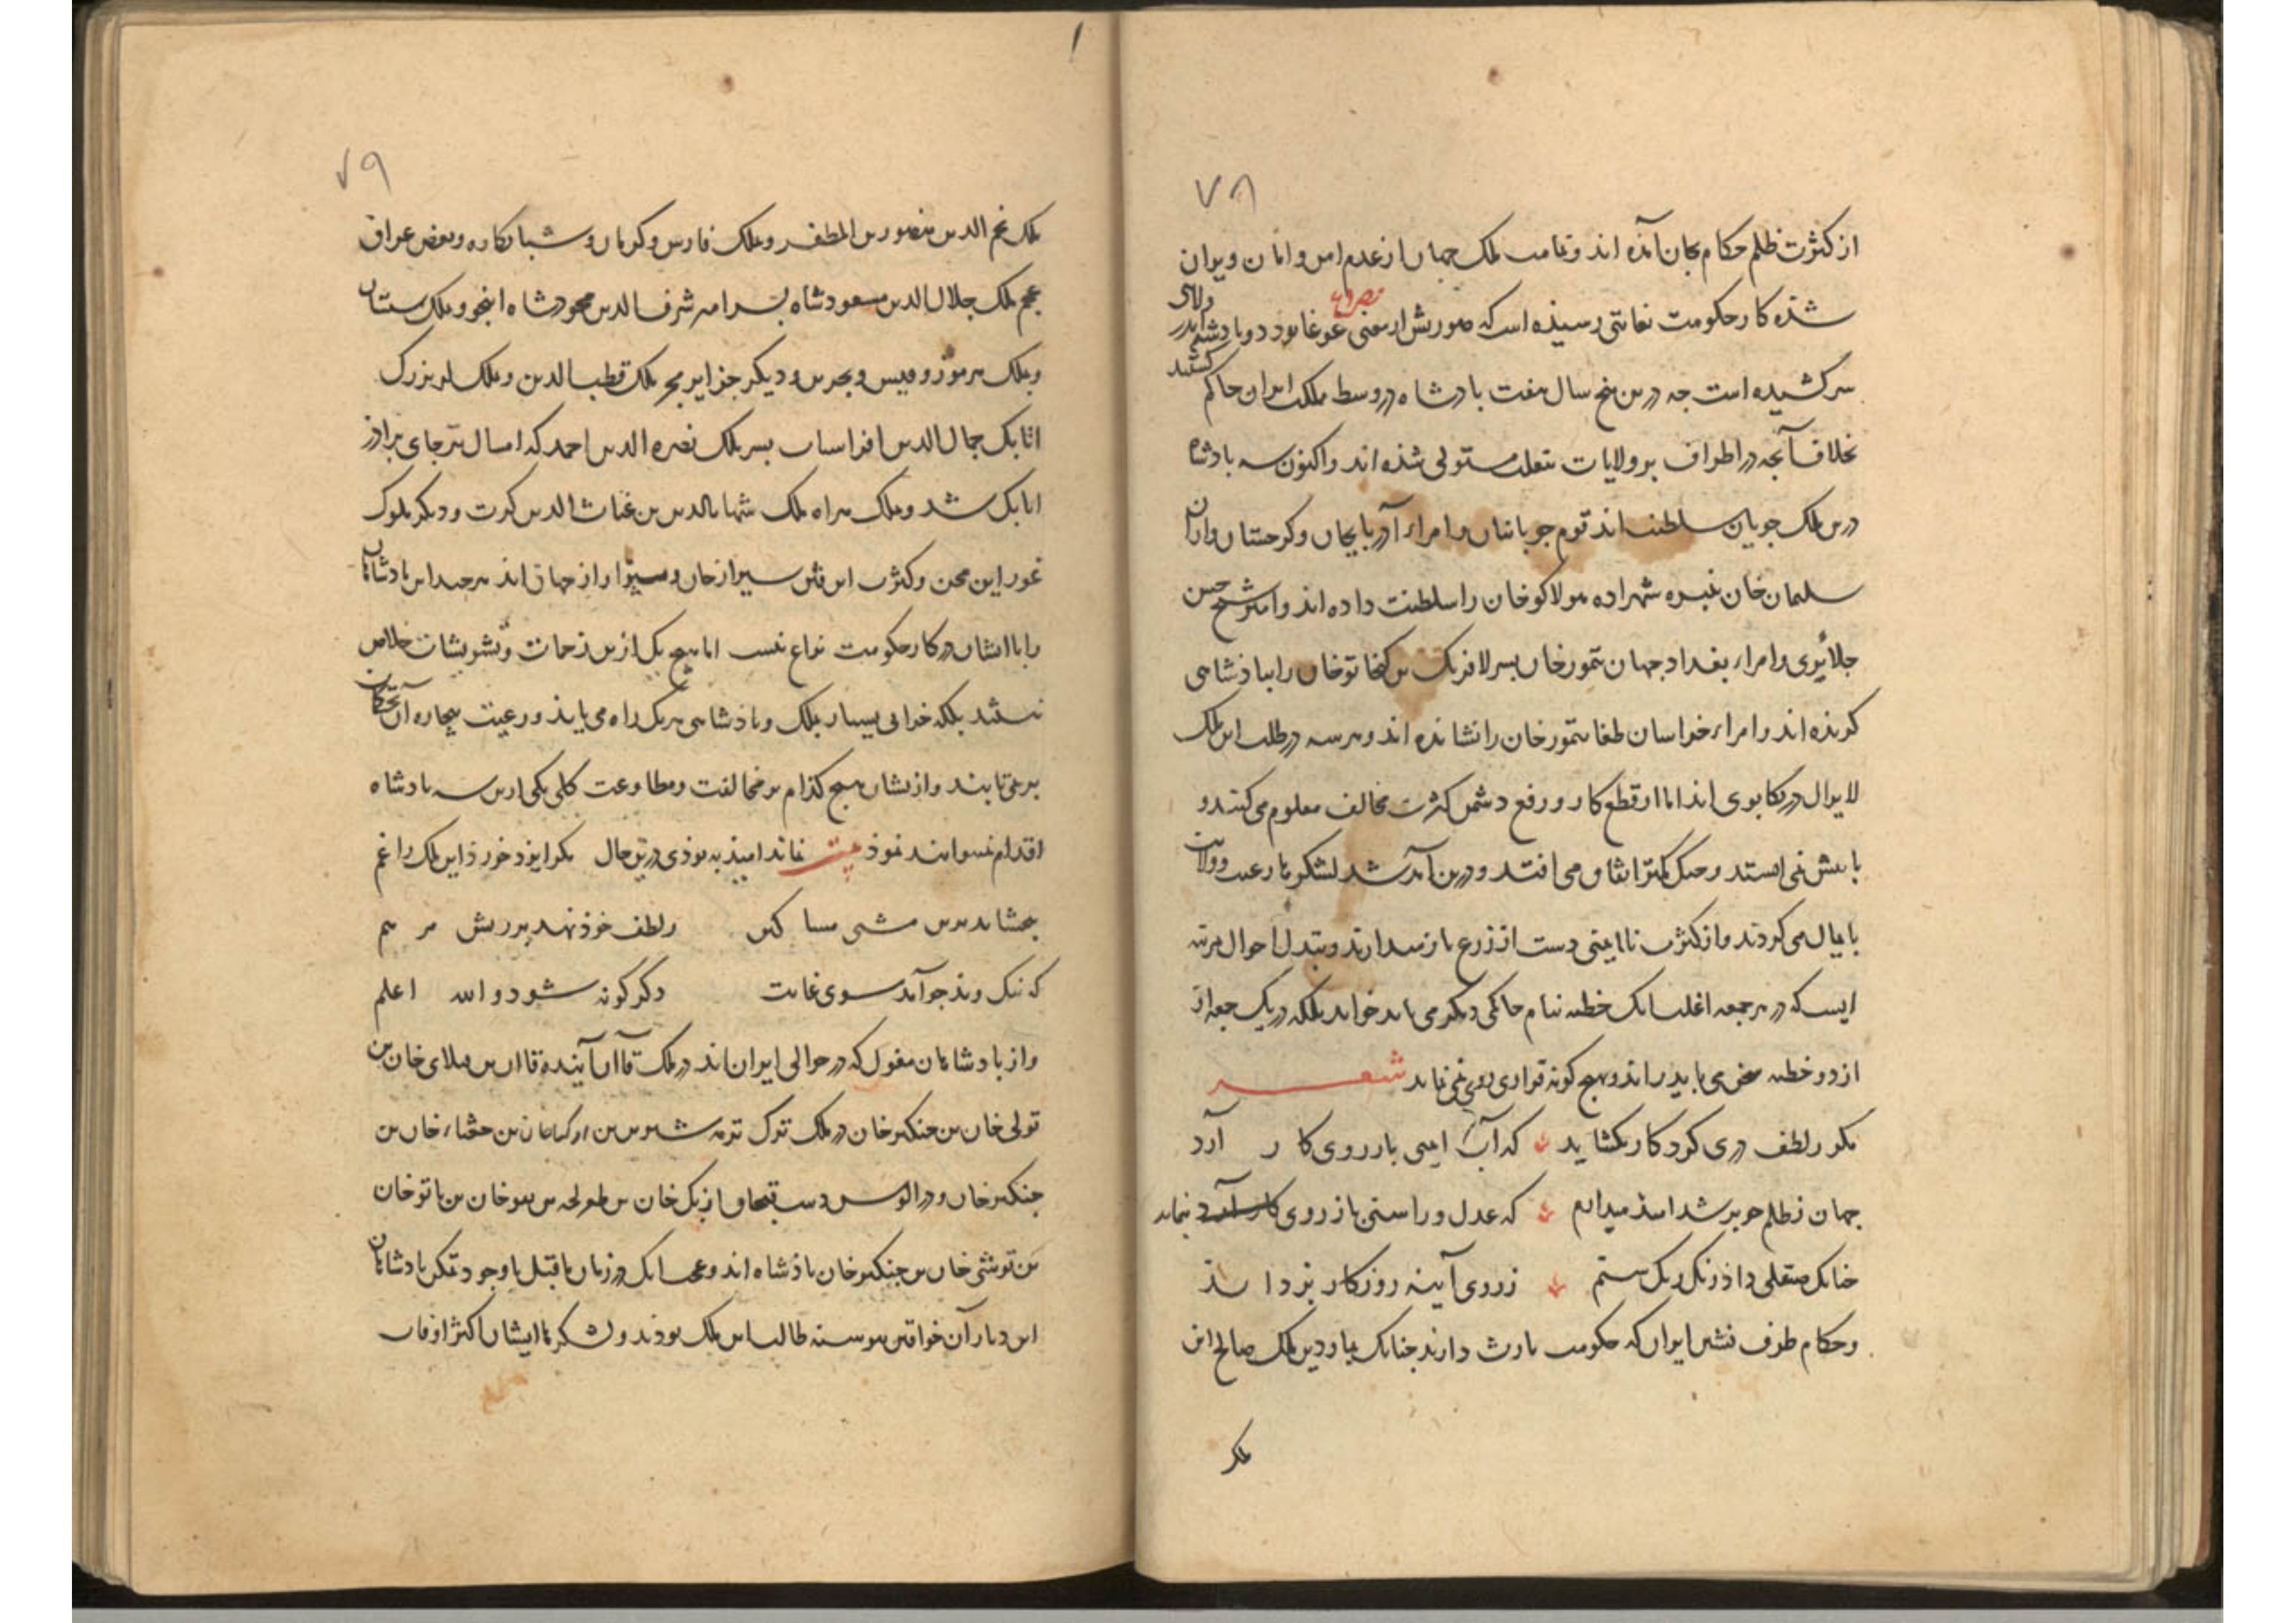 ٧٨
از کثرت ظلم حکام بجان آمده اند و تمامت ملک جهان از عدم امن و امان ویران
شده کار حکومت بغایتی رسیذه است که صورتش از معنی غوغا بود دو بادشاه
مصرع
سر کشیده است جه درین پنج سال هفت بادشاه در وسط مملکت ایران حاکم
کشتند
بخلاف آنچه در اطراف بر ولایات بتغلب مستولی شذه اند واکنون سه بادشاه
درین ملک جویان سلطنت اند قوم جوبانیان و امراء آذربایجان و کرجستان و اران
سلیمان خان نبیره شهزاده هولاکوخان را سلطنت داده اند و امیر شیخ حسن
جلائری و امراء بغداد جهان تیمور خان بسر الافرنک بن کیخاتو خان را بباذشاهی
کزیذه اند و امراء خراسان طغا تیمور خان را نشانده اند و هر سه در طلب این ملک
لایزال در تکابوی اند اما از قطع کار و رفع دشمن کثرت مخالف معلوم می کنند و
بایش نمی ایستد و جنک کمتر اتفاق می افتد و درین آمد شد لشکر با رعیت و ولایت
بایمال می کردند و از کثرت ناایمنی دست از زرع باز میدارند و تبدل احوال مرتبه
ایست که در هر جمعه اغلب انک خطبه بنام حاکمی دیکر می باید خواند بلکه در یک جمعه از
از دو خطبه سخن می باید راند و هیچ کونه قراری روی نمی نماید شعر
مکر زلطف دری کردکار بکشاید که آب ایمنی باز روی کار آرد
جهان ز ظلم جو بر شد امیذ میدارم که عدل و راستی باز روی کار آرد بنماید
جنانک صیقلی داذ زنک یک ستم ز روی آینه روزکار بزداید
و حکام طرف نشین ایران که حکومت بارث دارند جنانک بماردین ملک صالح ابن
ملک
٧٩
ملک نجم الدین منصور بن المظفر و ملک فارس و کرمان و شبانکاره و بعض عراق
عجم ملک جلال الدین مسعود شاه بسر امیر شرف الدین محمود شاه اینجو و ملک سیستان
و ملک هرموز و قیس و بحرین و دیکر جزایر بحر ملک قطب الدین و ملک لر بزرک
اتابک جمال الدین افراسیاب بسر ملک نصرة الدین احمد که امسال بر جای براذر
اتابک شد و ملک هراه ملک شهاب الدین بن غیاث الدین کرت و دیکر ملوک
غور ازین محن و کثرت این فتن سیر از جان و بیزار از جهان اند هر جند این بادشاهان
را با ایشان در کار حکومت نزاع نیست اما هیچ یک ازین زحمات و تشویشات خلاص
نیستند بلکه خرابی بسیار بملک و باذشاهی هریک راه می یابد و رعیت بیچاره
بر نمی تابند و از ایشان هیچ کدام بر مخالفت و مطاوعت کلی یکی ازین سه بادشاه
اقدام نمیتوانند نموذ بیت نماند امیذ به بوذی درین حال مکر ایزد خورذ این ملک را غم
ببخشاید برین مشتی مساکین زلطف خوذ نهد بر ریش مرهم
که نیک و بذ جو آید سوی غایت دکر کونه شود والله اعلم
و از بادشاهان مغول که در حوالی ایران اند در ملک قاآن
تولی خان بن جنکیز خان در ملک ترک جغتای خان بن
جنکیز خان و در الوس دشت قبجاق ازبک خان بن طغرلجه بن منکو خان بن باتو خان
بن توشی خان بن جنکیز خان باذشاه اند و عجب انک در زمان ماقبل با وجود تمکن بادشاهان
این دیار آن خواقین پیوسته طالب این ملک بودند و لشکر با ایشان اکثر اوقات